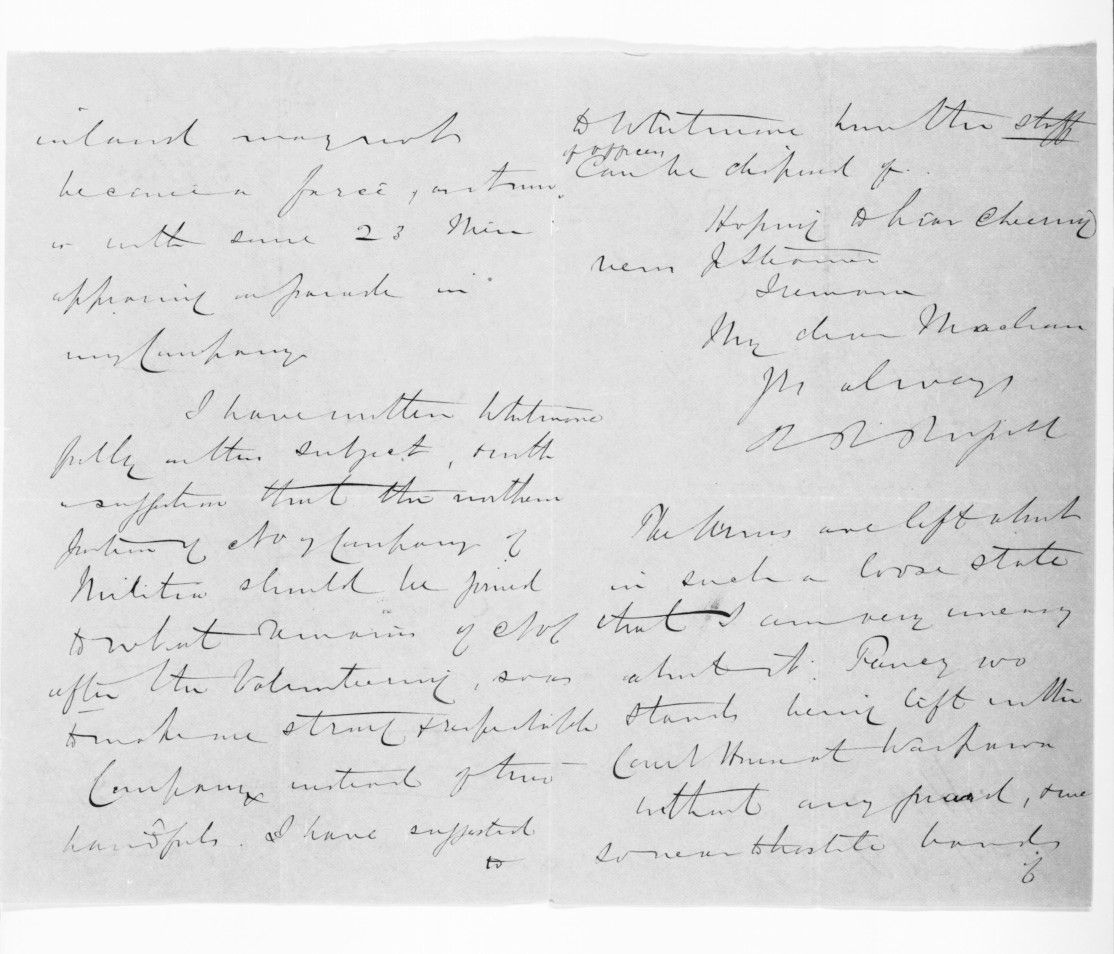 inland may not
become a farce, as it now
is with some 23 Men
appearing on parade in
my Company
I have written Whitmore
fully on this subject, & with
a suggestion that the northern
portion of No 7 Company of
Militia should be joined
to what remains of No
after the Volunteering, so as
to make one strong & respectable
Company instead of two
handfuls. I have suggested
to
to Whitmore how the staff
of officers
Can be disposed of.
Hoping to hear cheering
news P Steamer
I remain
My dear Maclean
Yrs always
The arms are left about
in such a loose state
that I am very uneasy
about it. Fancy 200
stands being left in the
Court House at Waipawa
without any guard, &
so near to hostile bands